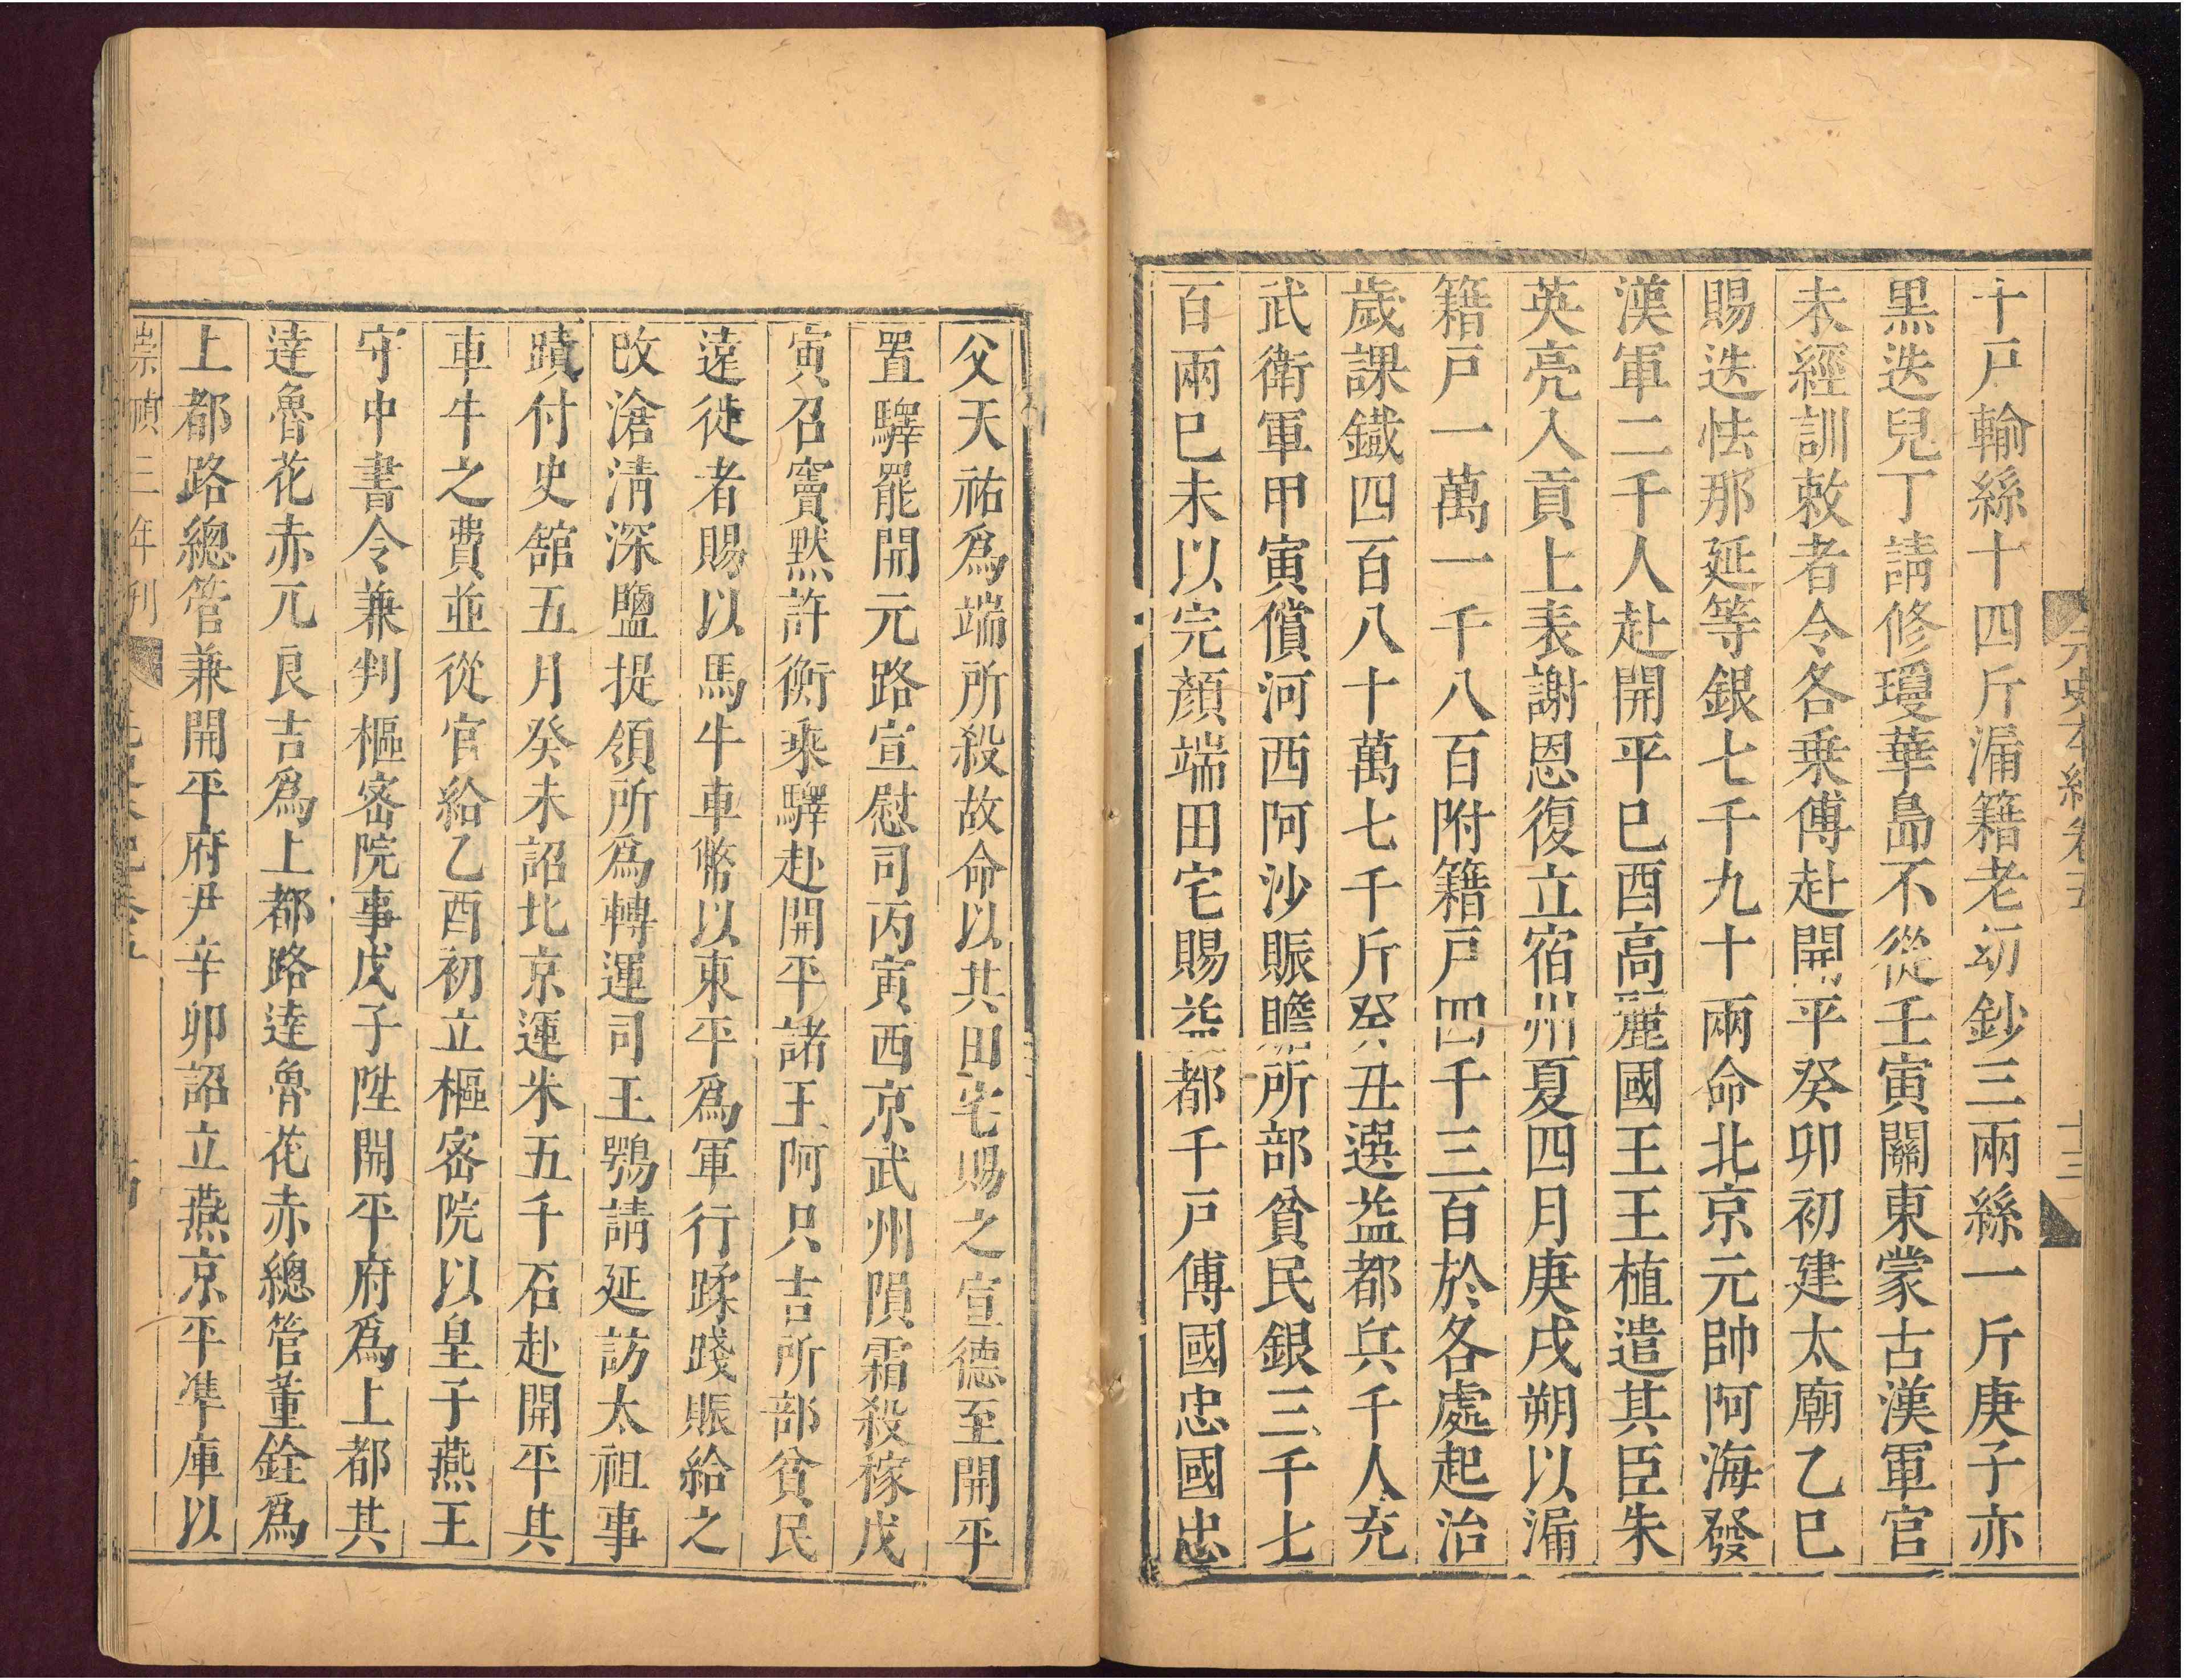 元史本紀卷五
十三
十戸輸絲十四斤漏籍老幼鈔三兩絲一斤庚子亦
黒迭兒丁請修瓊華島不從壬寅關東蒙古漢軍官
未經訓敕者令各乗傳赴開平癸卯初建太廟乙巳
賜迭怯那延等銀七千九十兩命北京元帥阿海發
漢軍二千人赴開平巳酉高麗國王王植遣其臣朱
英亮入貢上表謝恩復立宿州夏四月庚戌朔以漏
籍戸一萬一千八百附籍戸四千三百於各處起冶
歲課鐵四百八十萬七千斤癸丑選益都兵千人充
武衛軍甲寅償河西阿沙賑贍所部貧民銀三千七
百兩巳未以完顏端田宅賜益都千戸傅國忠國忠
父天祐爲端所殺故命以其田宅賜之宣德至開平
置驛罷開元路宣慰司丙寅西京武州隕霜殺稼戊
寅召竇默許衡乘驛赴開平諸王阿只吉所部貧民
遠徙者賜以馬牛車幣以東平爲軍行蹂踐賑給之
改滄清深鹽提領所爲轉運司王鶚請延訪太祖事
蹟付史館五月癸未詔北京運米五千石赴開平其
車牛之費並從官給乙酉初立樞密院以皇子燕王
守中書令兼判樞密院事戊子陞開平府爲上都其
達魯花赤兀良吉爲上都路達魯花赤總管董銓爲
上都路總管兼開平府尹辛卯詔立燕京平準庫以
崇禎三年刊
元史本紀卷五